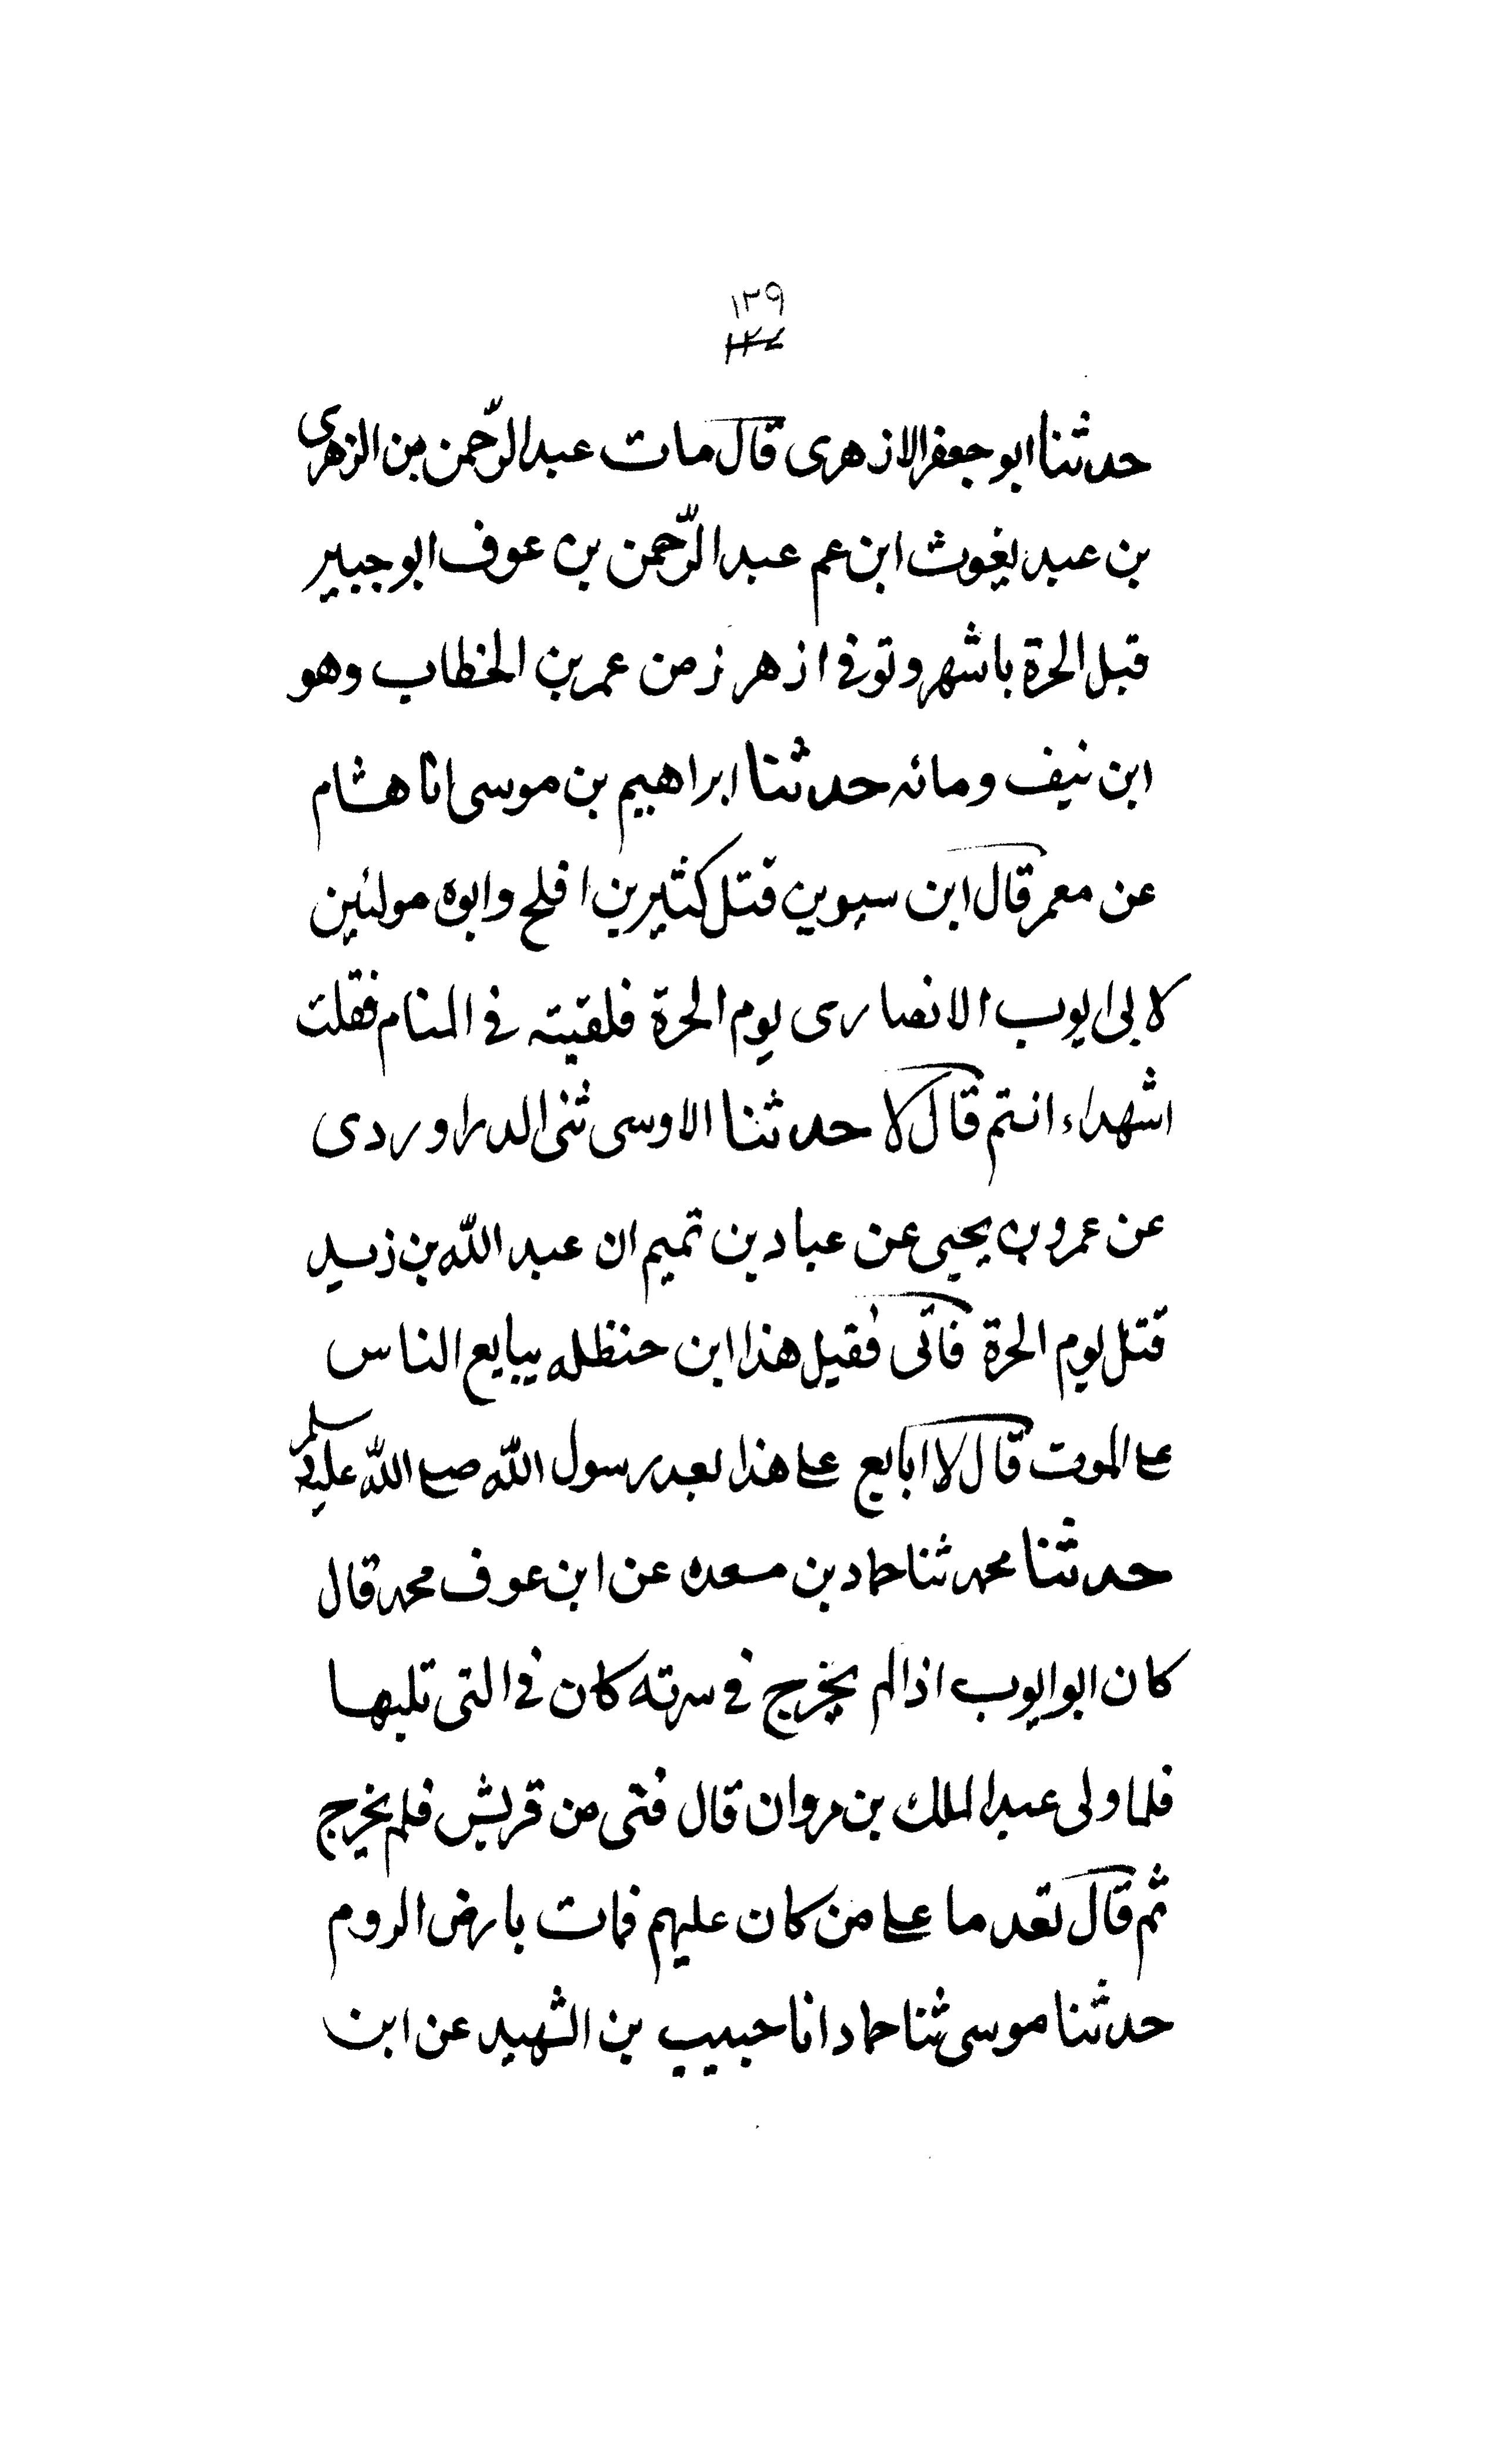 ١٣٩
حدثنا ابو جعفر الازهرى قال مات عبد الرّحمن بن الزهرى
بن عبد يغوث ابن عم عبد الرّحمن بن عوف ابو جبير
قبل الحرة باشهر وتوفى ازهر زمن عمر بن الخطاب وهو
ابن نيف ومائه حدثنا ابراهيم بن موسى انا هشام
عن معمر قال ابن سيوين قتل كثير بن افلح وابوه مولئين
لابى ايوب الانصارى يوم الحرة فلقيته فى المنام فقلت
اشهداء انتم قال لا حدثنا الاوسى ثنى الدراوردى
عن عمرو بن يحيى عن عباد بن تميم ان عبد اللّه بن زيد
قتل يوم الحرة فاتى فقيل هذا ابن حنظله يبايع الناس
على الموت قال لا ابايع على هذا بعد رسول اللّه صلى اللّه عليه وسلم
حدثنا محمد ثنا حماد بن مسعده عن ابن عوف محمد قال
كان ابو ايوب اذا لم يخرج فى سرته كان فى التى تليها
فلما ولى عبد الملك بن مروان قال فتى من قريش فلم يخرج
ثم قال تعد ما على من كان عليهم فمات بارض الروم
حدثنا موسى ثنا حماد انا حبيب بن الشهيد عن ابن